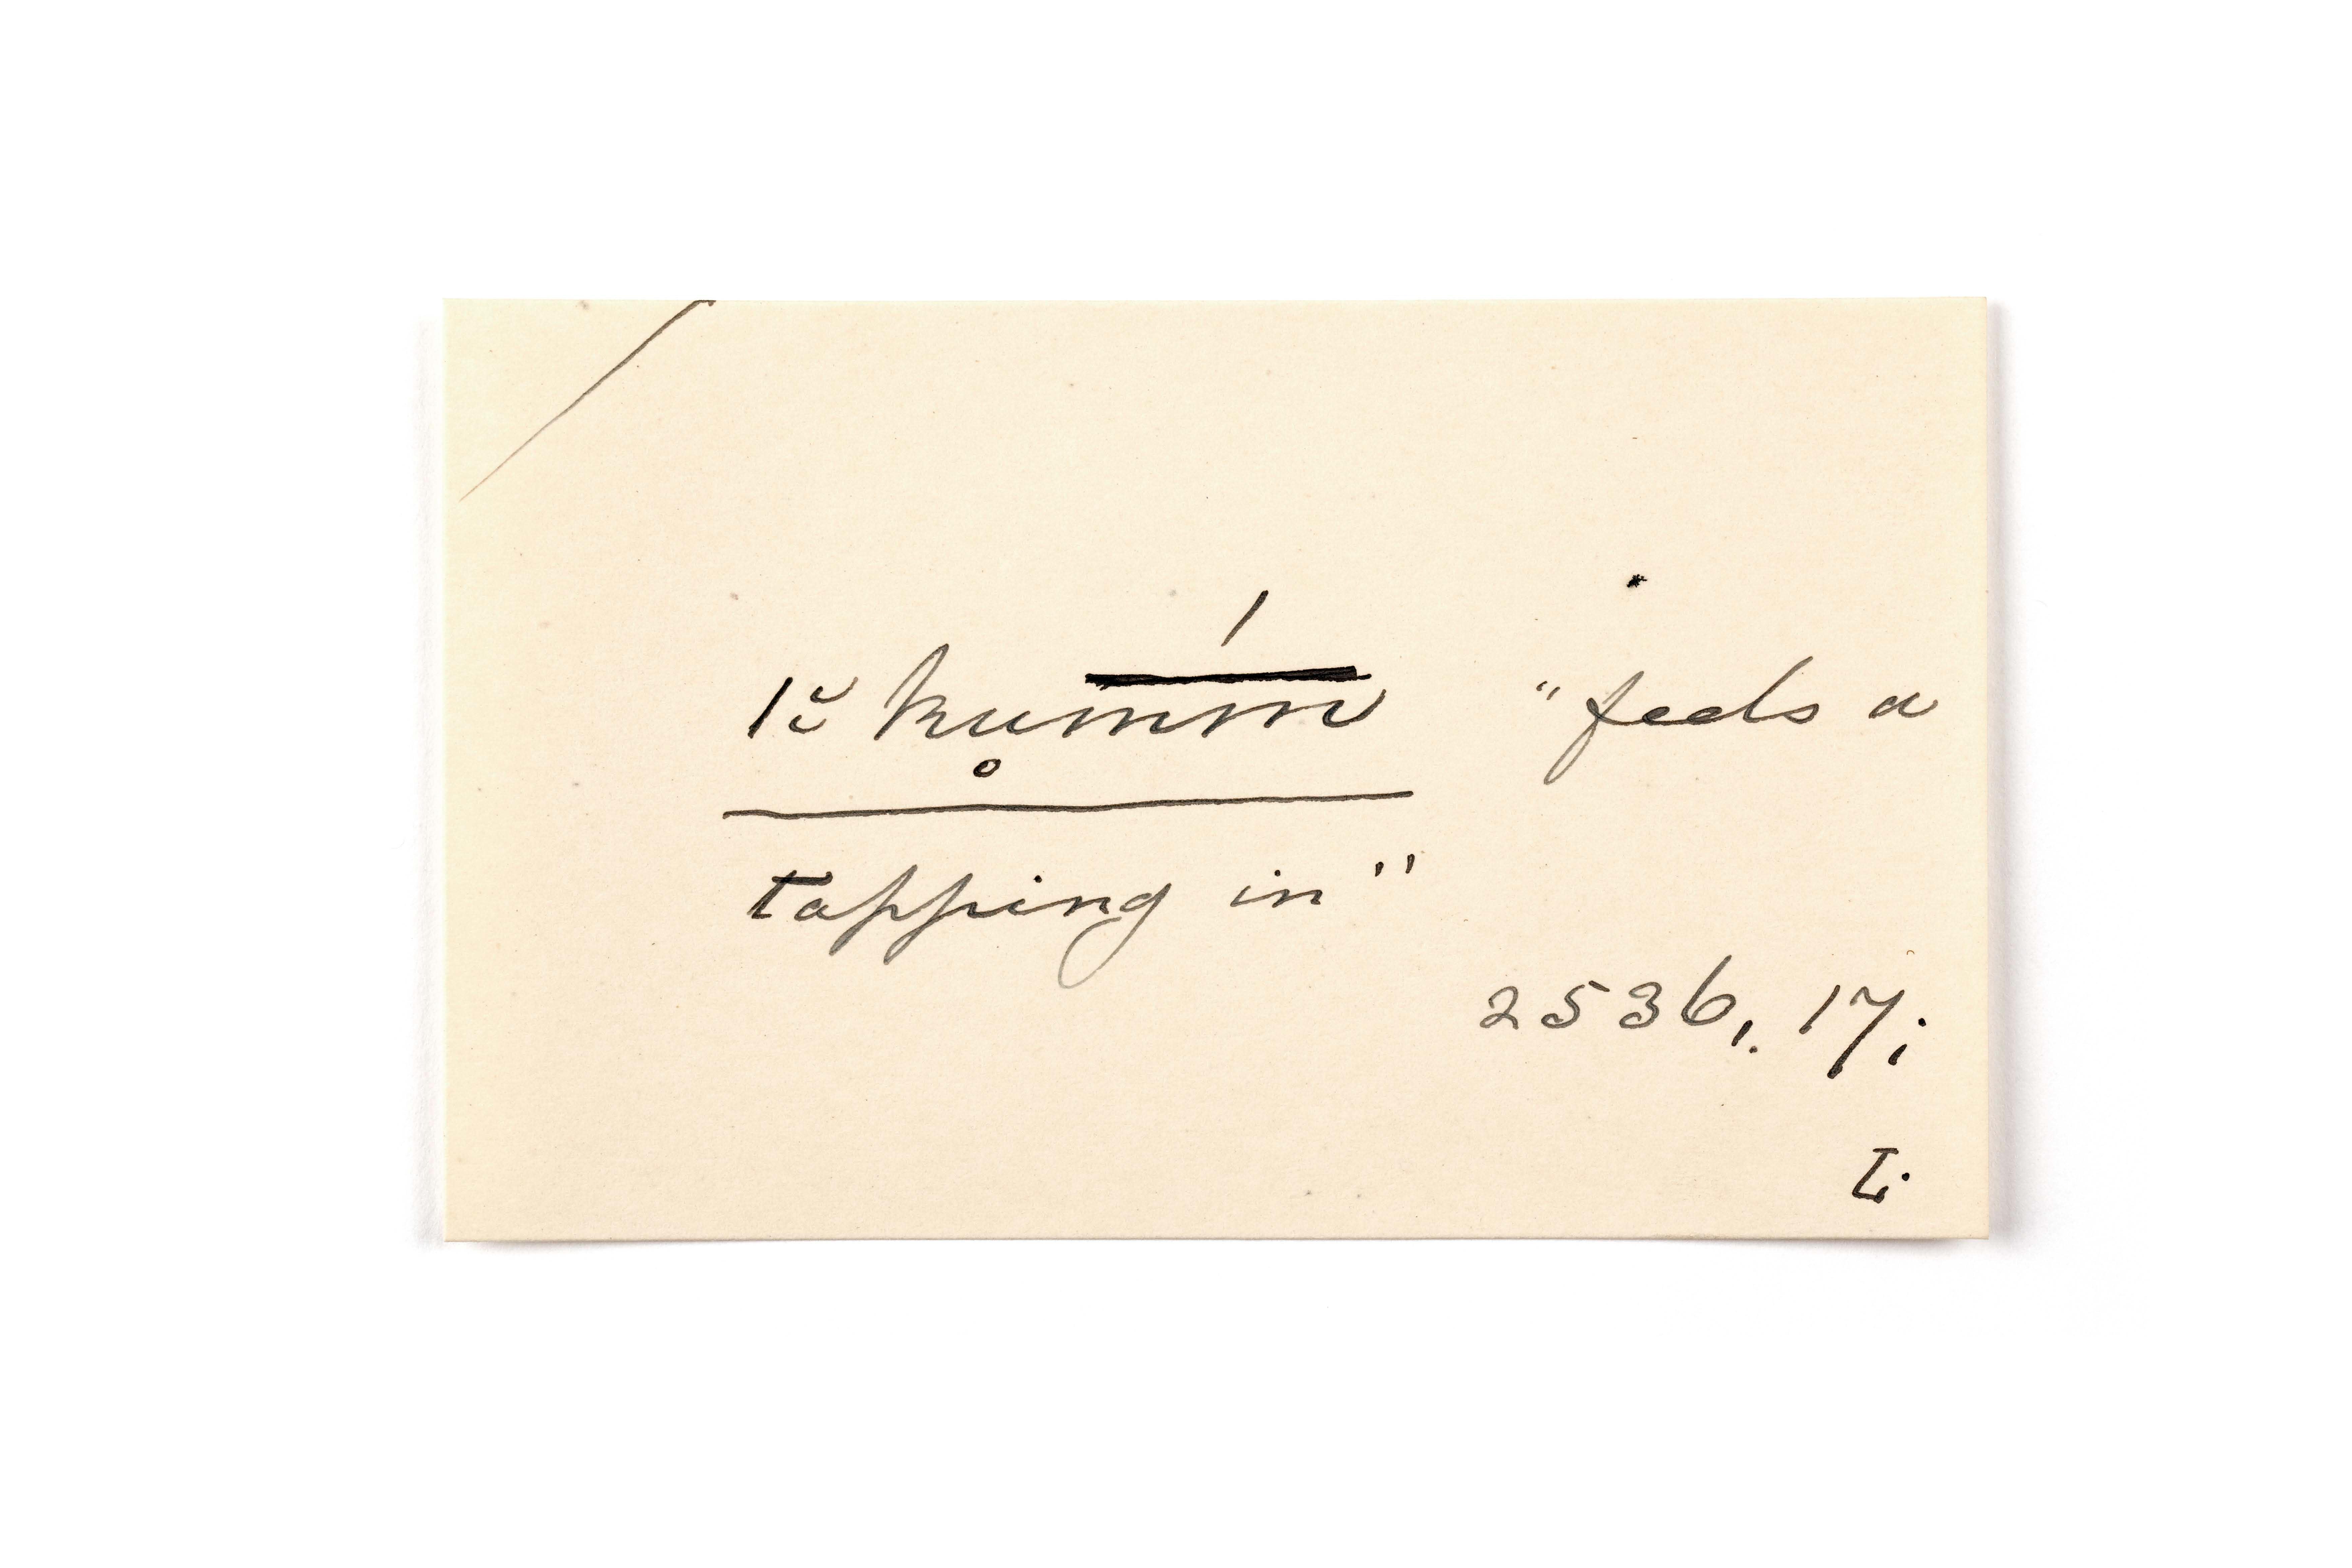 ǀĕ ku̥m̅m̅́ "feels a
tapping in"
2536, 17;
L.